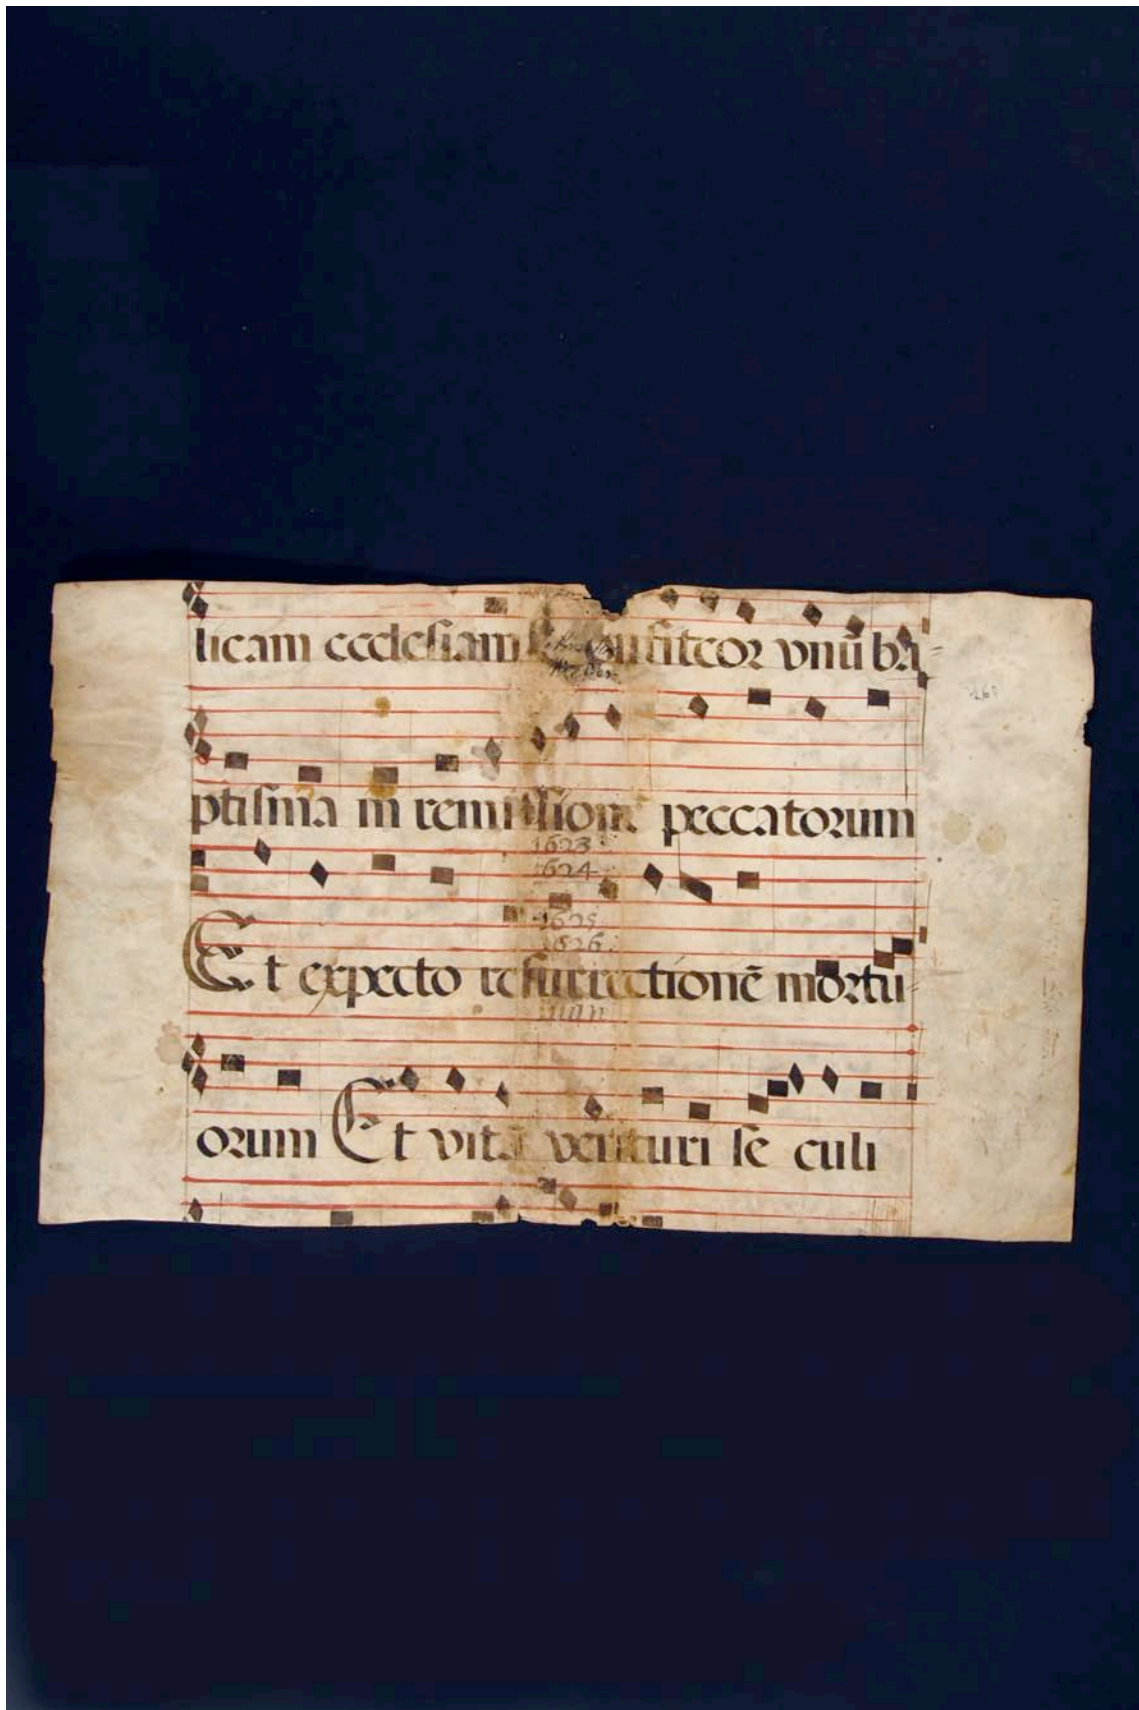 licam ecclesiam confiteor vnū ba=
ptisma in remissionē peccatorum
1623
1624
1625
1626
Et expecto resurrectionē mortu=
orum Et vitā venturi se culi